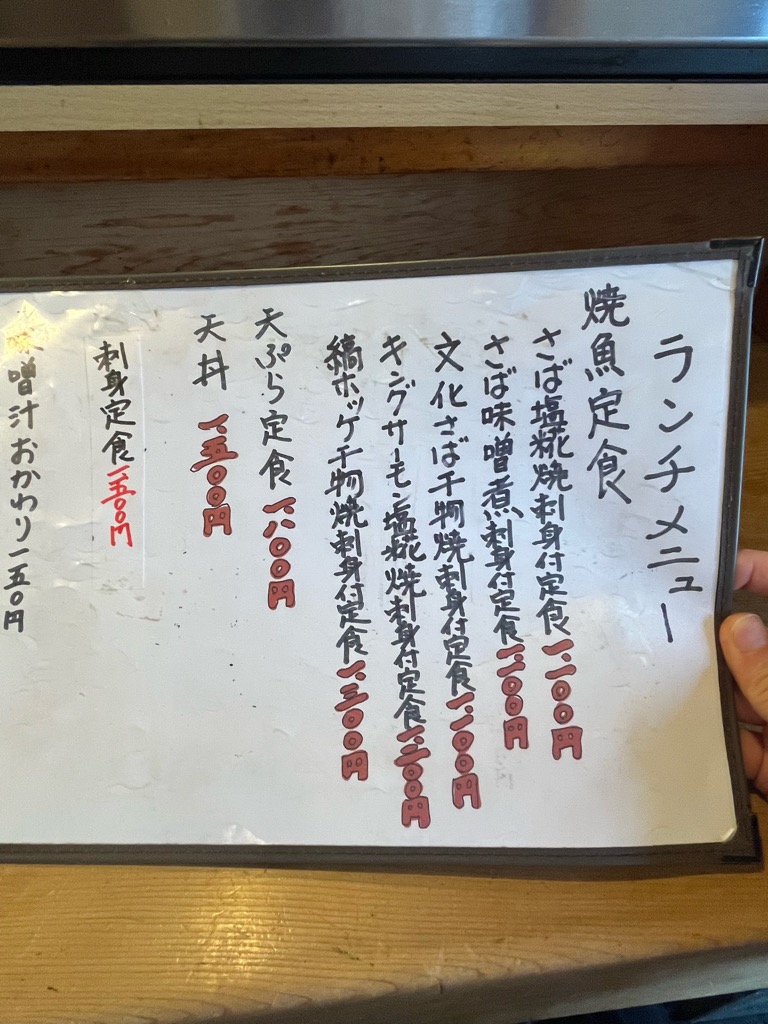 ランチメニュー
焼魚定食
さば塩糀焼刺身付定食 一.二〇〇円
さば味噌煮刺身付定食
文化さば干物焼刺身付定食
キングサーモン塩糀焼刺身付定食
縞ホッケ干物焼刺身付定食 一.三〇〇円
天ぷら定食 一.八〇〇円
天丼 一.五〇〇円
刺身定食 一.五〇〇円
味噌汁おかわり一五〇円